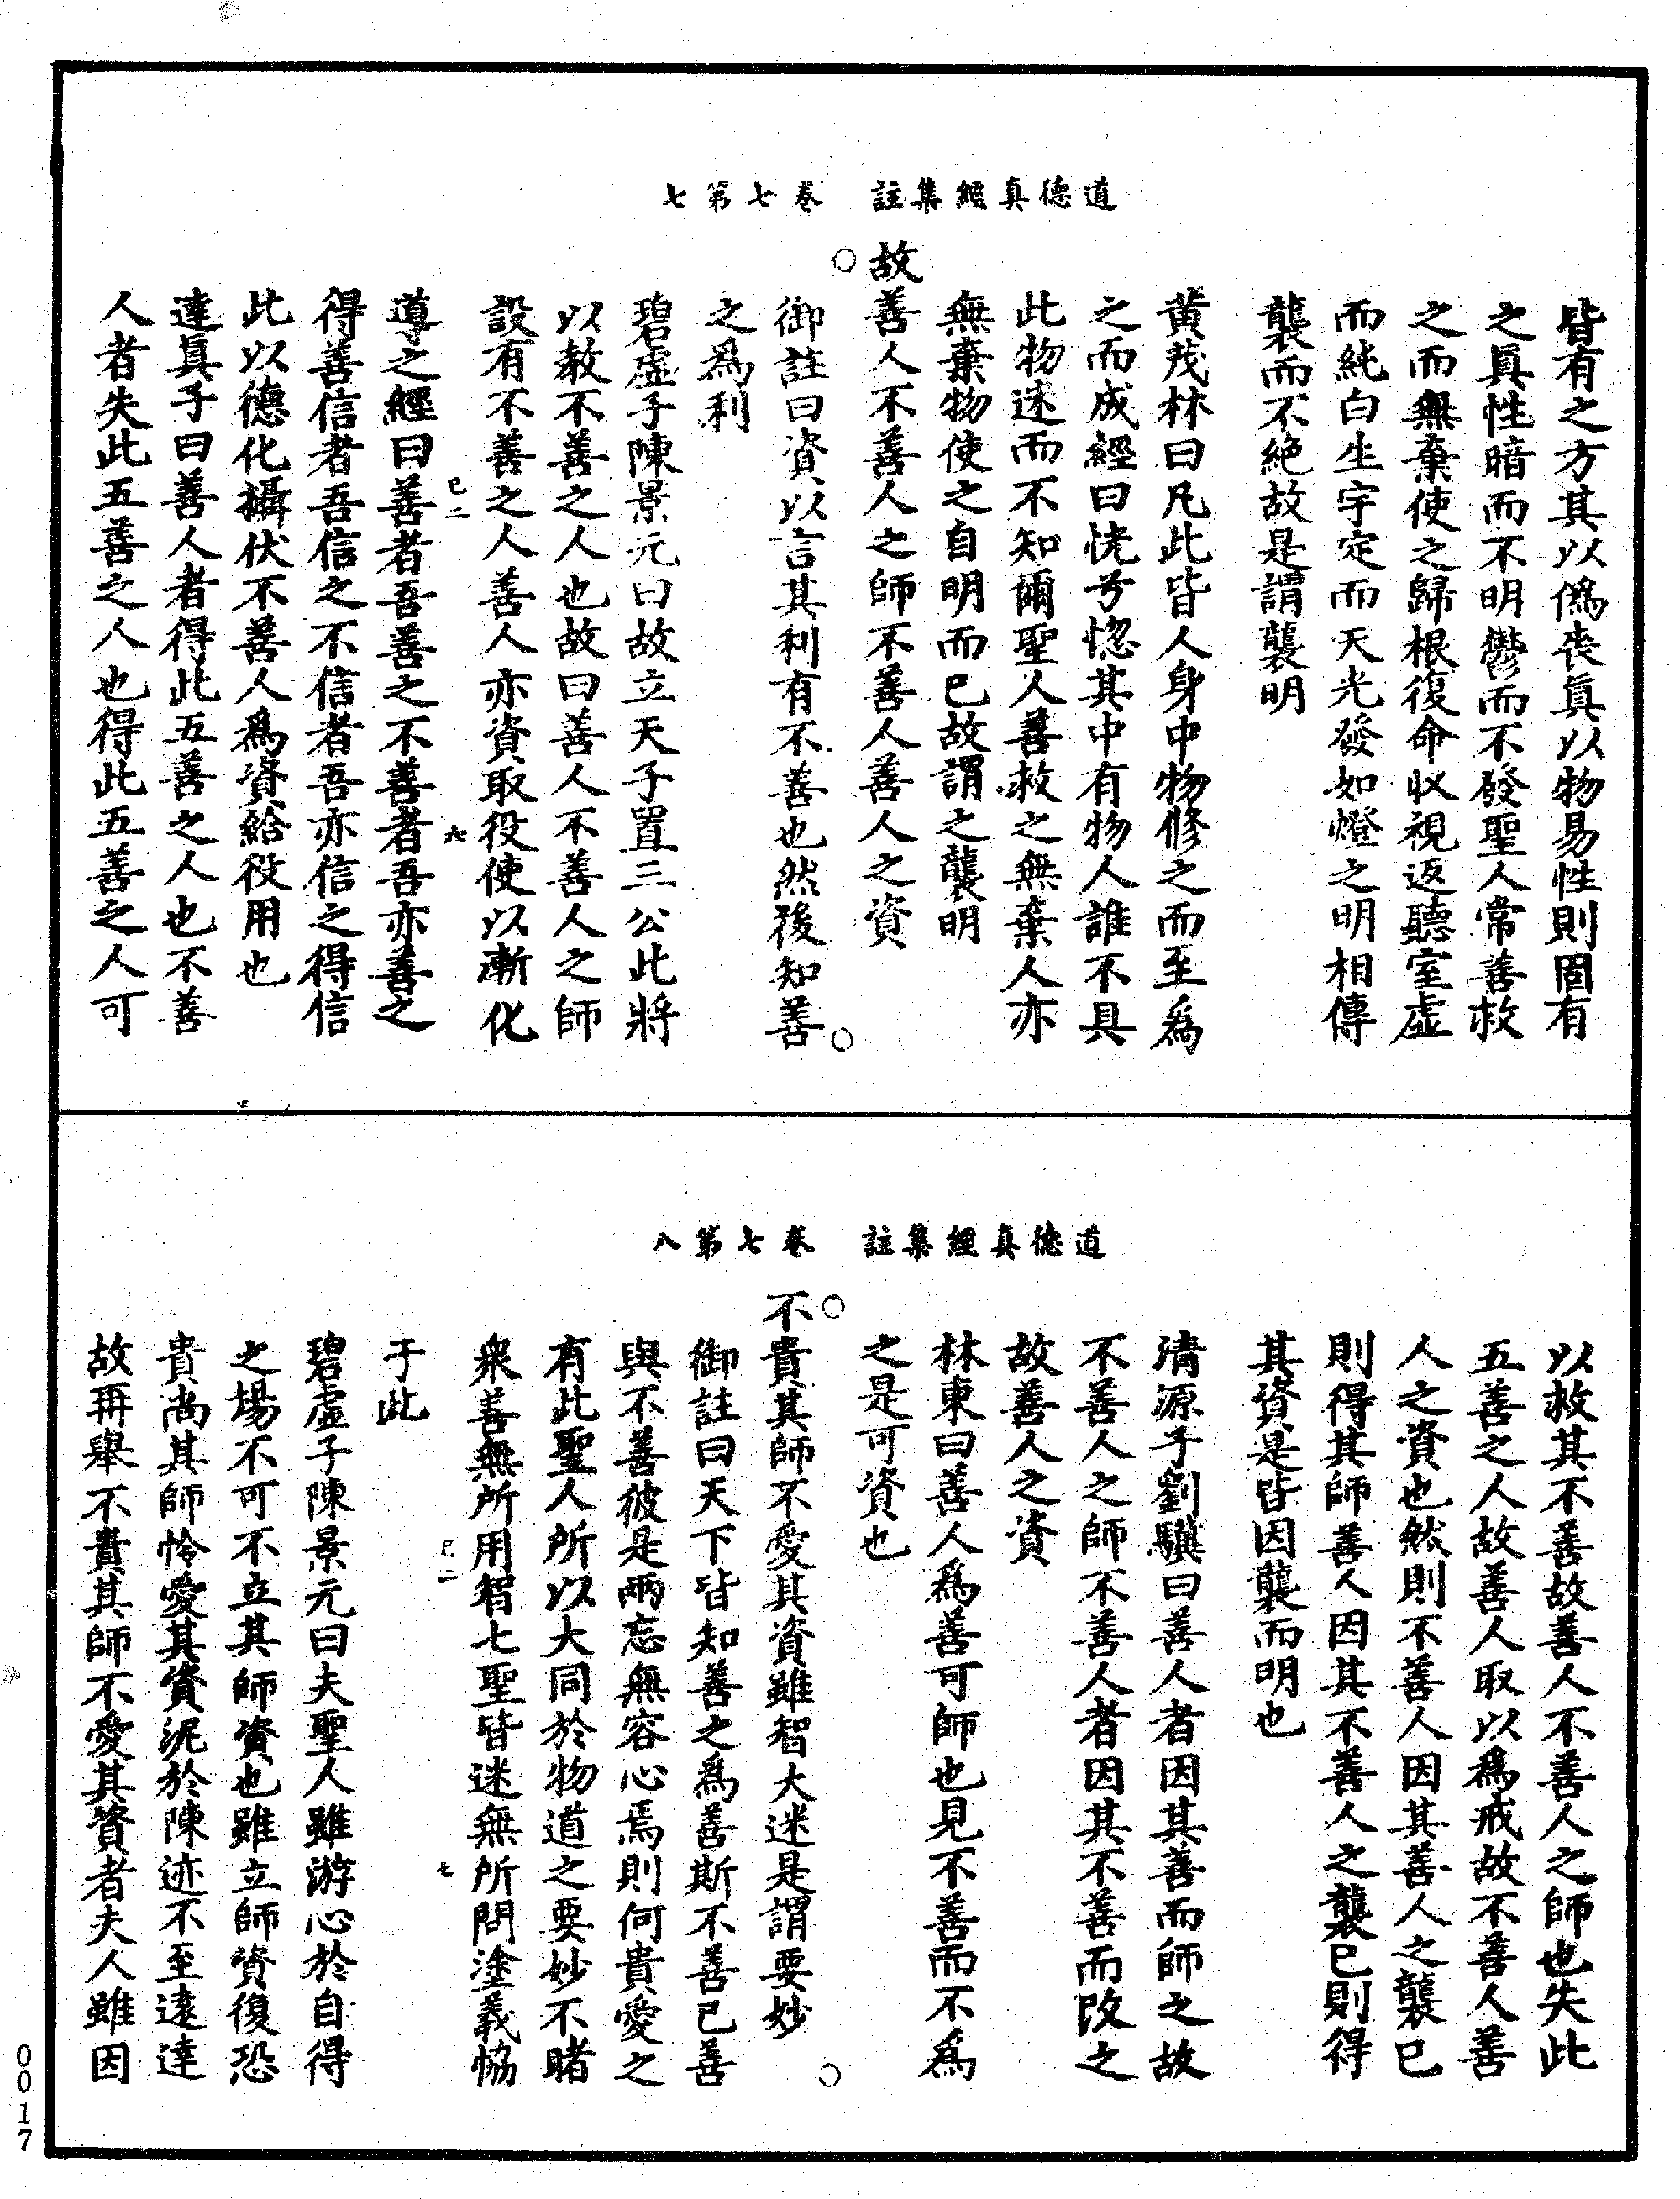 道德真經集註　卷七第七
皆有之方其以僞喪眞以物易性則固有
之眞性暗而不明鬱而不發聖人常善救
之而無棄使之歸根復命收視返聽室虛
而純白生宇定而天光發如燈之明相傳
襲而不絶故是謂襲明
黄茂林曰凡此皆人身中物修之而至爲
之而成經曰恍兮惚其中有物人誰不具
此物迷而不知爾聖人善救之無棄人亦
無棄物使之自明而已故謂之襲明
故善人不善人之師不善人善人之資
○
○
御註曰資以言其利有不善也然後知善
之爲利
碧虛子陳景元曰故立天子置三公此將
以教不善之人也故曰善人不善人之師
設有不善之人善人亦資取役使以漸化
已二
六
導之經曰善者吾善之不善者吾亦善之
得善信者吾信之不信者吾亦信之得信
此以德化攝伏不善人爲資給役用也
達眞子曰善人者得此五善之人也不善
人者失此五善之人也得此五善之人可
道德真經集註　卷七第八
以救其不善故善人不善人之師也失此
五善之人故善人取以爲戒故不善人善
人之資也然則不善人因其善人之襲已
則得其師善人因其不善人之襲已則得
其資是皆因襲而明也
清源子劉驥曰善人者因其善而師之故
不善人之師不善人者因其不善而改之
故善人之資
林東曰善人爲善可師也見不善而不爲
之是可資也
○
○
不貴其師不愛其資雖智大迷是謂要妙
御註曰天下皆知善之爲善斯不善已善
與不善彼是兩忘無容心焉則何貴愛之
有此聖人所以大同於物道之要妙不睹
衆善無所用智七聖皆迷無所問塗義恊
已二
七
于此
碧虛子陳景元曰夫聖人雖游心於自得
之場不可不立其師資也雖立師資復恐
貴尚其師怜愛其資泥於陳迹不至遠達
故再舉不貴其師不愛其資者夫人雖因
0017